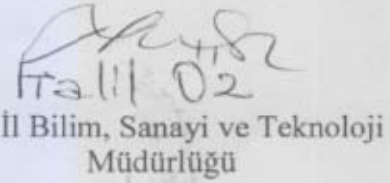 Halil Öz
İl Bilim, Sanayi ve Teknoloji
Müdürlüğü